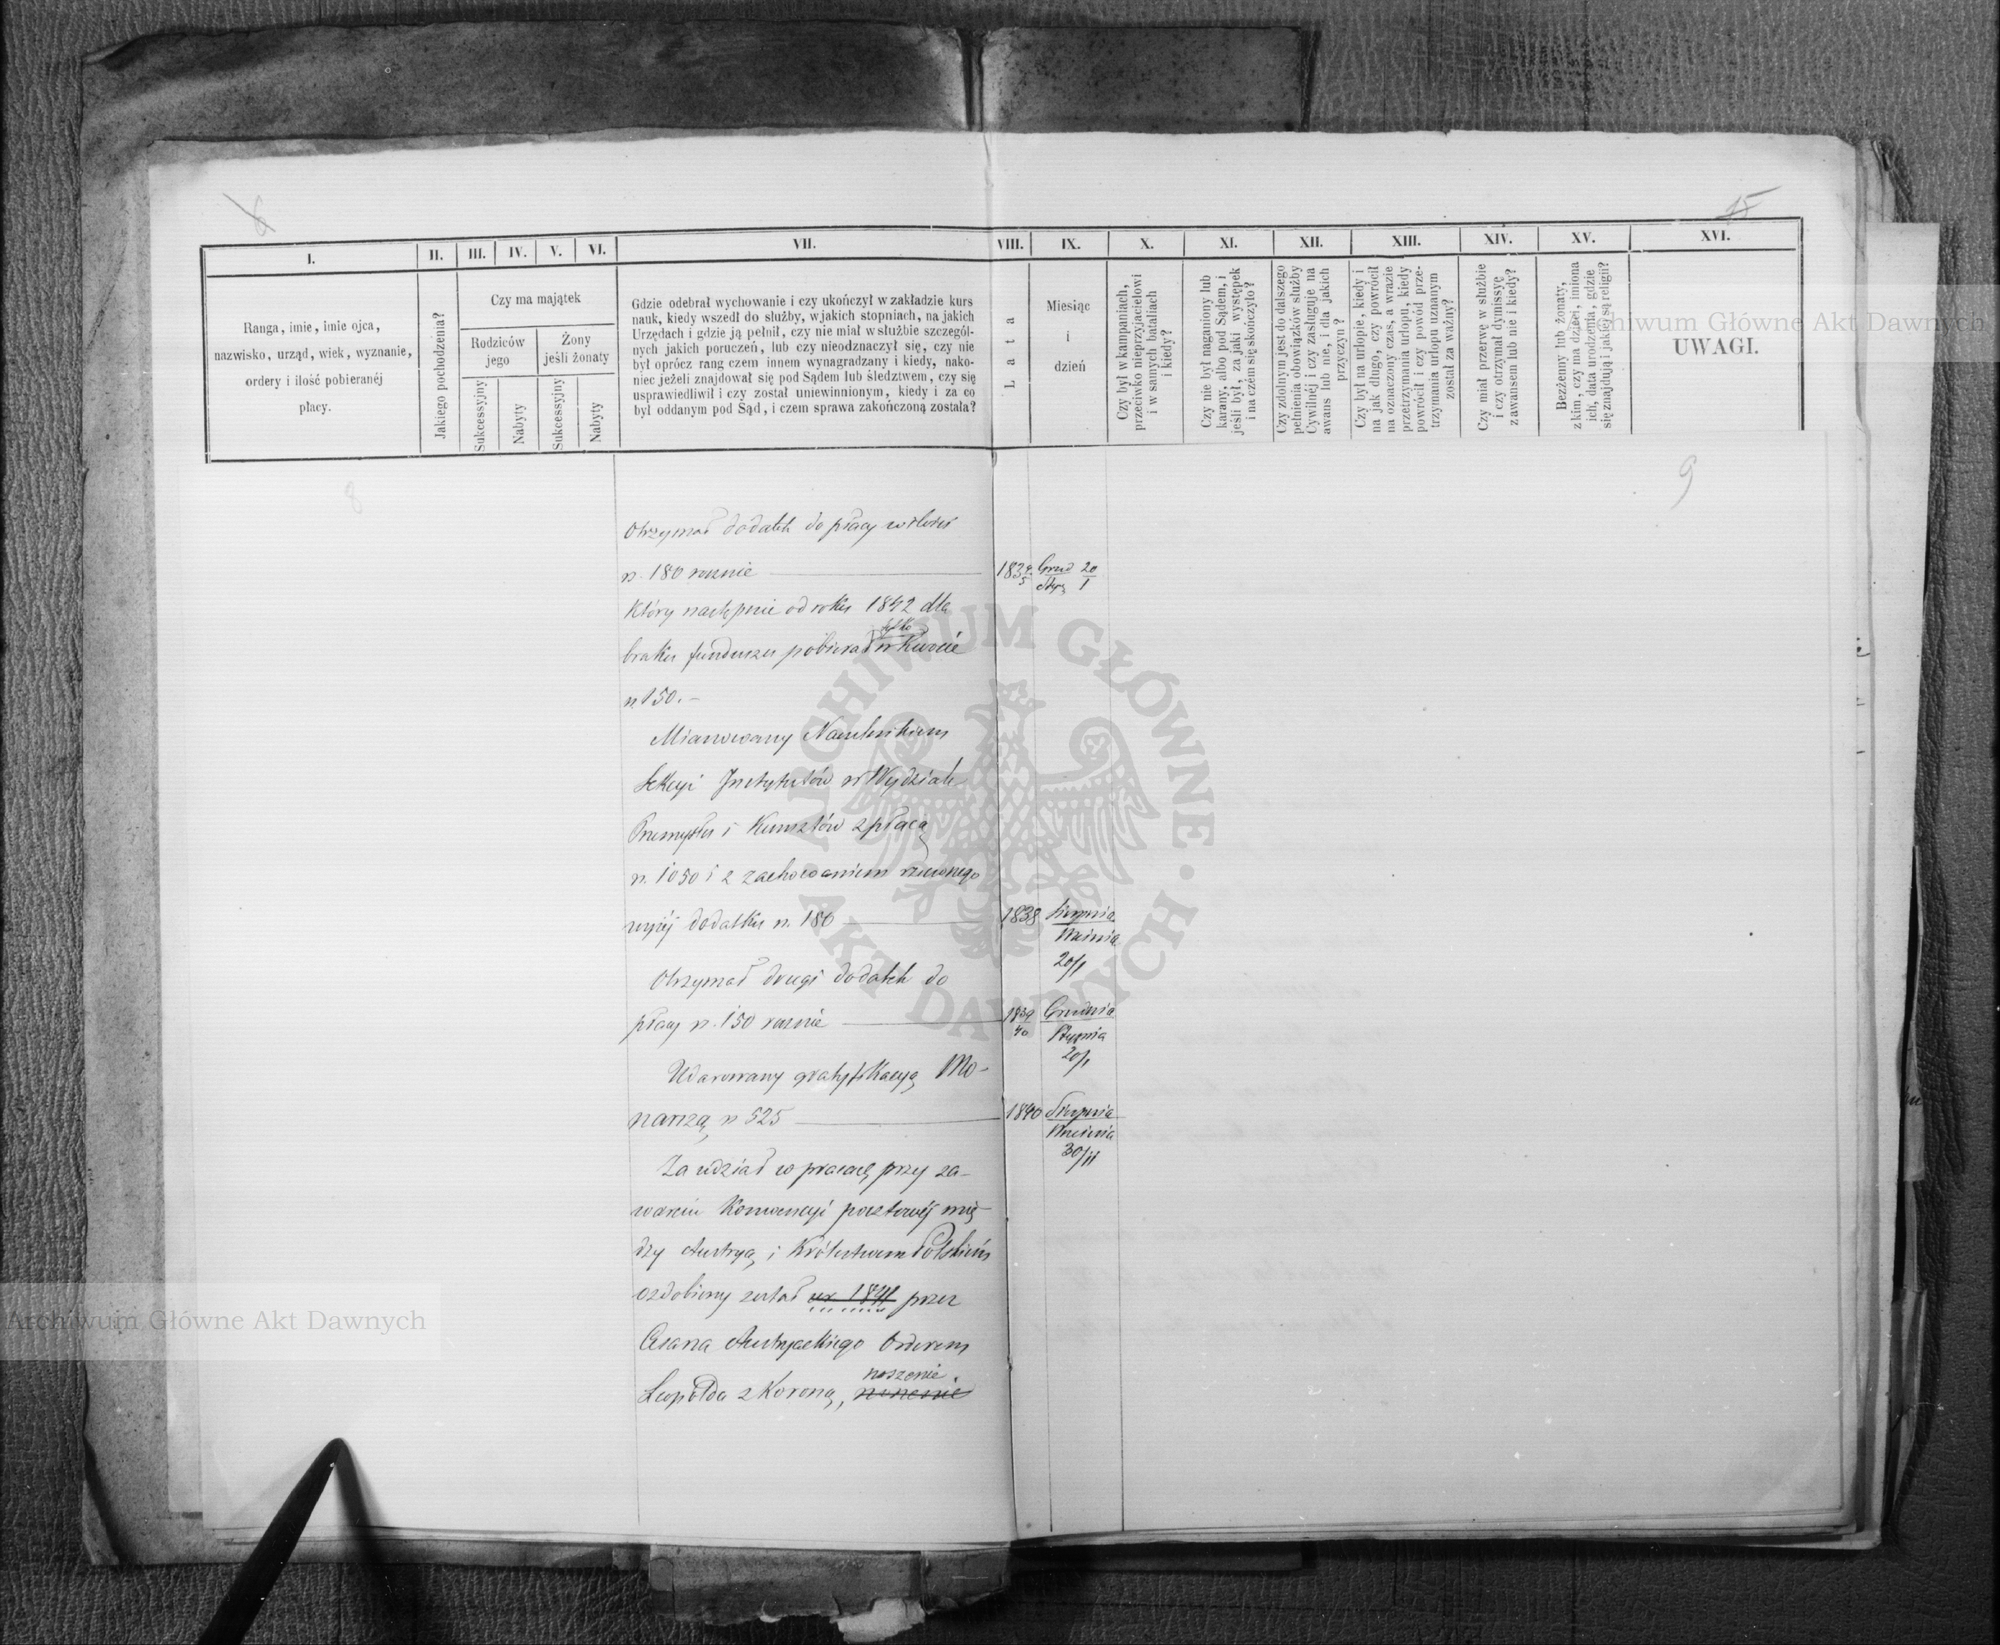 6
15
I.
II.
III.
IV.
V.
VI.
VII.
VIII.
IX.
X.
XI.
XII.
XIII.
XIV.
XV.
XVI.
Ranga, imie, imie ojca,
nazwisko, urząd, wiek, wyznanie,
ordery i ilość pobieranéj
płacy.
Jakiego pochodzenia?
Czy ma majątek
Rodziców
jego
Żony
jeśli żonaty
Sukcessyjny
Nabyty
Sukcessyjny
Nabyty
Gdzie odebrał wychowanie i czy ukończył w zakładzie kurs
nauk, kiedy wszedł do służby, w jakich stopniach, na jakich
Urzędach i gdzie ją pełnił, czy nie miał w służbie szczegól-
nych jakich poruczeń, lub czy nieodznaczył się, czy nie
był oprócz rang czem innem wynagradzany i kiedy, nako-
niec jeżeli znajdował się pod Sądem lub śledztwem, czy się
usprawiedliwił i czy został uniewinnionym, kiedy i za co
był oddanym pod Sąd, i czem sprawa zakończoną została?
Lata
Miesiąc
i
dzień
Czy był w kampaniach,
przeciwko nieprzyjacielowi
i w samych bataliach
i kiedy?
Czy nie był naganiony lub
karany, albo pod Sądem, i
jeśli był, za jaki występek
i na czém się skończyło?
Czy zdolnym jest do dalszego
pełnienia obowiązków służby
Cywilnéj i czy zasługuje na
awans lub nie, i dla jakich
przyczyn?
Czy był na urlopie, kiedy i
na jak długo, czy powrócił
na oznaczony czas, a w razie
przetrzymania urlopu, kiedy
powrócił i czy powód prze-
trzymania urlopu uznanym
został za ważny?
Czy miał przerwę w służbie
i czy otrzymał dymissyę
z awansem lub nie i kiedy?
Bezżenny lub żonaty,
z kim, czy ma dzieci, imiona
ich, data urodzenia, gdzie
się znajdują i jakiej są religii?
UWAGI.
8
9
Otrzymał dodatek do płacy w ilości
r. 180 rocznie
1834/5
Grud 20
Stycz 1
Który następnie od roku 1842 dla
braku funduszu pobierał tylko w kwocie
r. 150.-
Mianowany Naczelnikiem
Sekcyi Instytutów w Wydziale
Przemysłu i Kunsztów z płacą
r. 1050 i z zachowaniem rzeczonego
wyżej dodatku r. 180
1838
Sierpnia
Września
20/1
Otrzymał drugi dodatek do
płacy r. 150 rocznie
1839/40
Grudnia
Stycznia
20/1
Udarowany gratyfikacyą Mo-
narszą r 525
1840
Sierpnia
Września
30/11
Za udział w pracach przy za-
warciu Konwencyi pocztowéj mię-
dzy Austryą i Królestwem Polskim
ozdobiony został w r. 1841 przez
Cesarza Austryackiego Orderem
Leopolda z Koroną, noszenie
Archiwum Główne Akt Dawnych
Archiwum Główne Akt Dawnych
ARCHIWUM GŁÓWNE AKT DAWNYCH